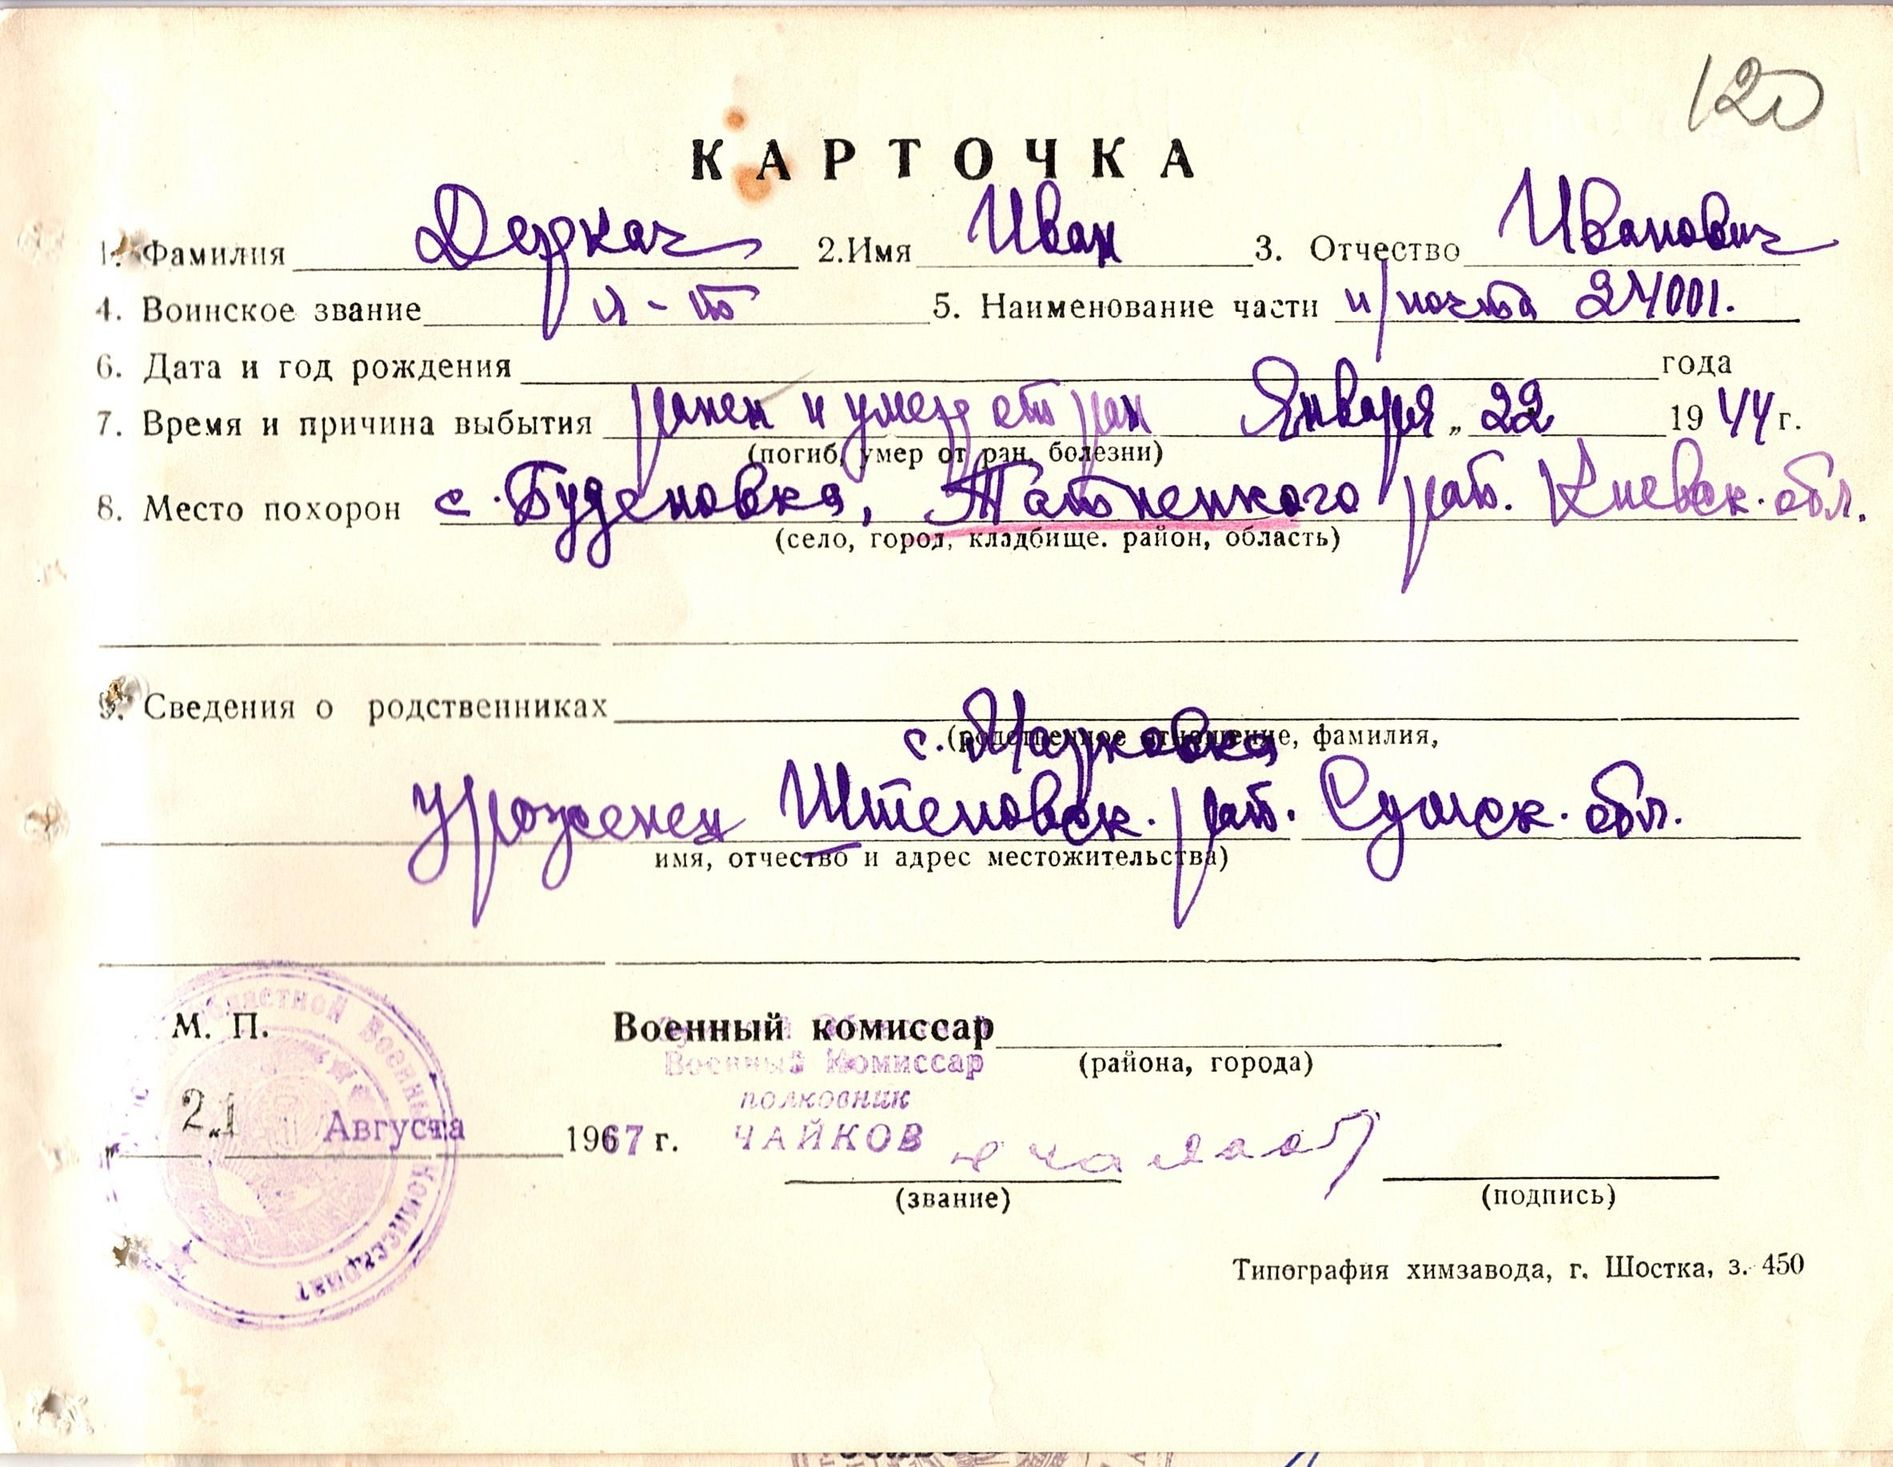 120
КАРТОЧКА
1. Фамилия Деркач 2.Имя Иван 3. Отчество Иванович
4. Воинское звание л-т 5. Наименование части п/почта 24001.
6. Дата и год рождения года
7. Время и причина выбытия ранен и умер от ран Января „ 22 1944 г.
(погиб, умер от ран, болезни)
8. Место похорон с. Буденовка, района. Киевск. обл.
(село, город, кладбище. район, область)
9. Сведения о родственниках
(родственное отношение, фамилия,
с. Марковка
уроженец Штеповск. рай. Сумск. обл.
имя, отчество и адрес местожительства)
М. П. Военный комиссар
(района, города)
Военный Комиссар
полковник
21 Августа 1967 г. ЧАЙКОВ
(звание) (подпись)
Областной Военный Комиссариат
Типография химзавода, г. Шостка, з. 450